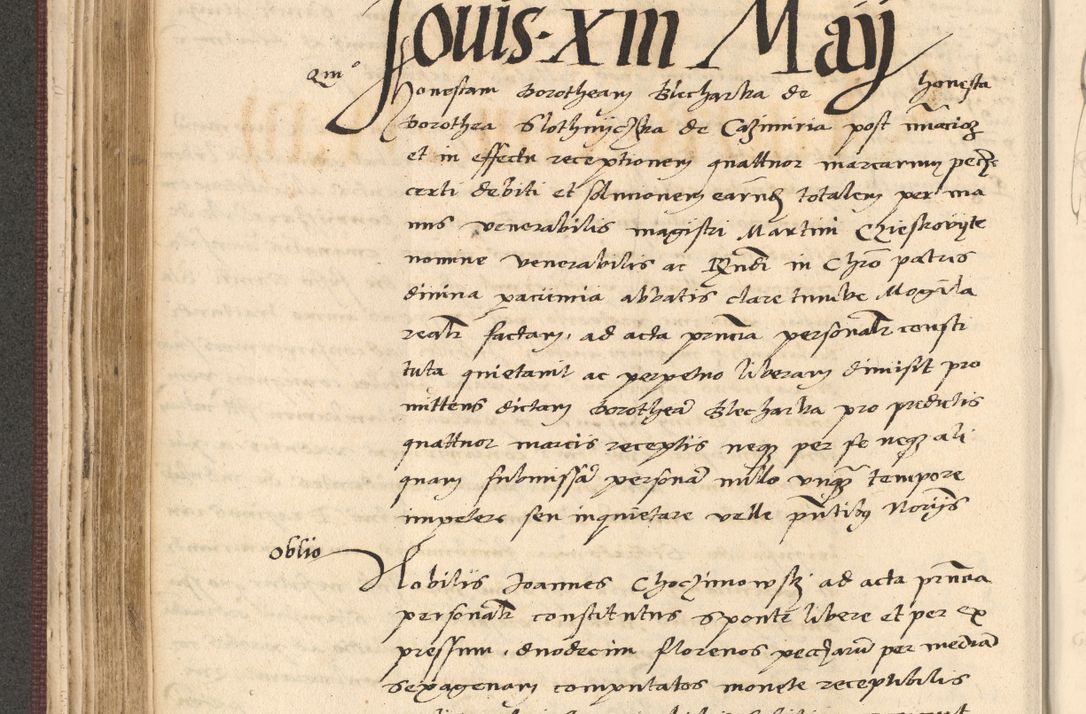 Jouis. XIII Maÿ
Honestam Dorotheam Blecharka de honesta
Dorothea Slothnyczka de Cazimiria post
et in effectu receptionem quattuor marcarum pecze
certi debiti et solucionem earundem totalem per ma
nus venerabilis magistri Martini Chieskovijte
nomine venerabilis ac Rndi in Chro patris
divina paciencia abbatis clare tumbe Mogila
realr factam, ad acta pnncia personalr consti
tuta quietavit ac perpetuo liberam dimisit pro
mittens dictam Dorothea Blecharka pro predictis
quattuor marcis receptis neqz per se neqz ali
quam submissa persona nullo unqz tempore
impetere seu inquietare velle pntibz Norijs
Oblio
Nobilis Joannes Choczimowskj ad acta pnncia
personalr constitutus sponte libere et per ex
pressum, duodecim florenos peczaru per media
sexagenam computatos monete receptibilis